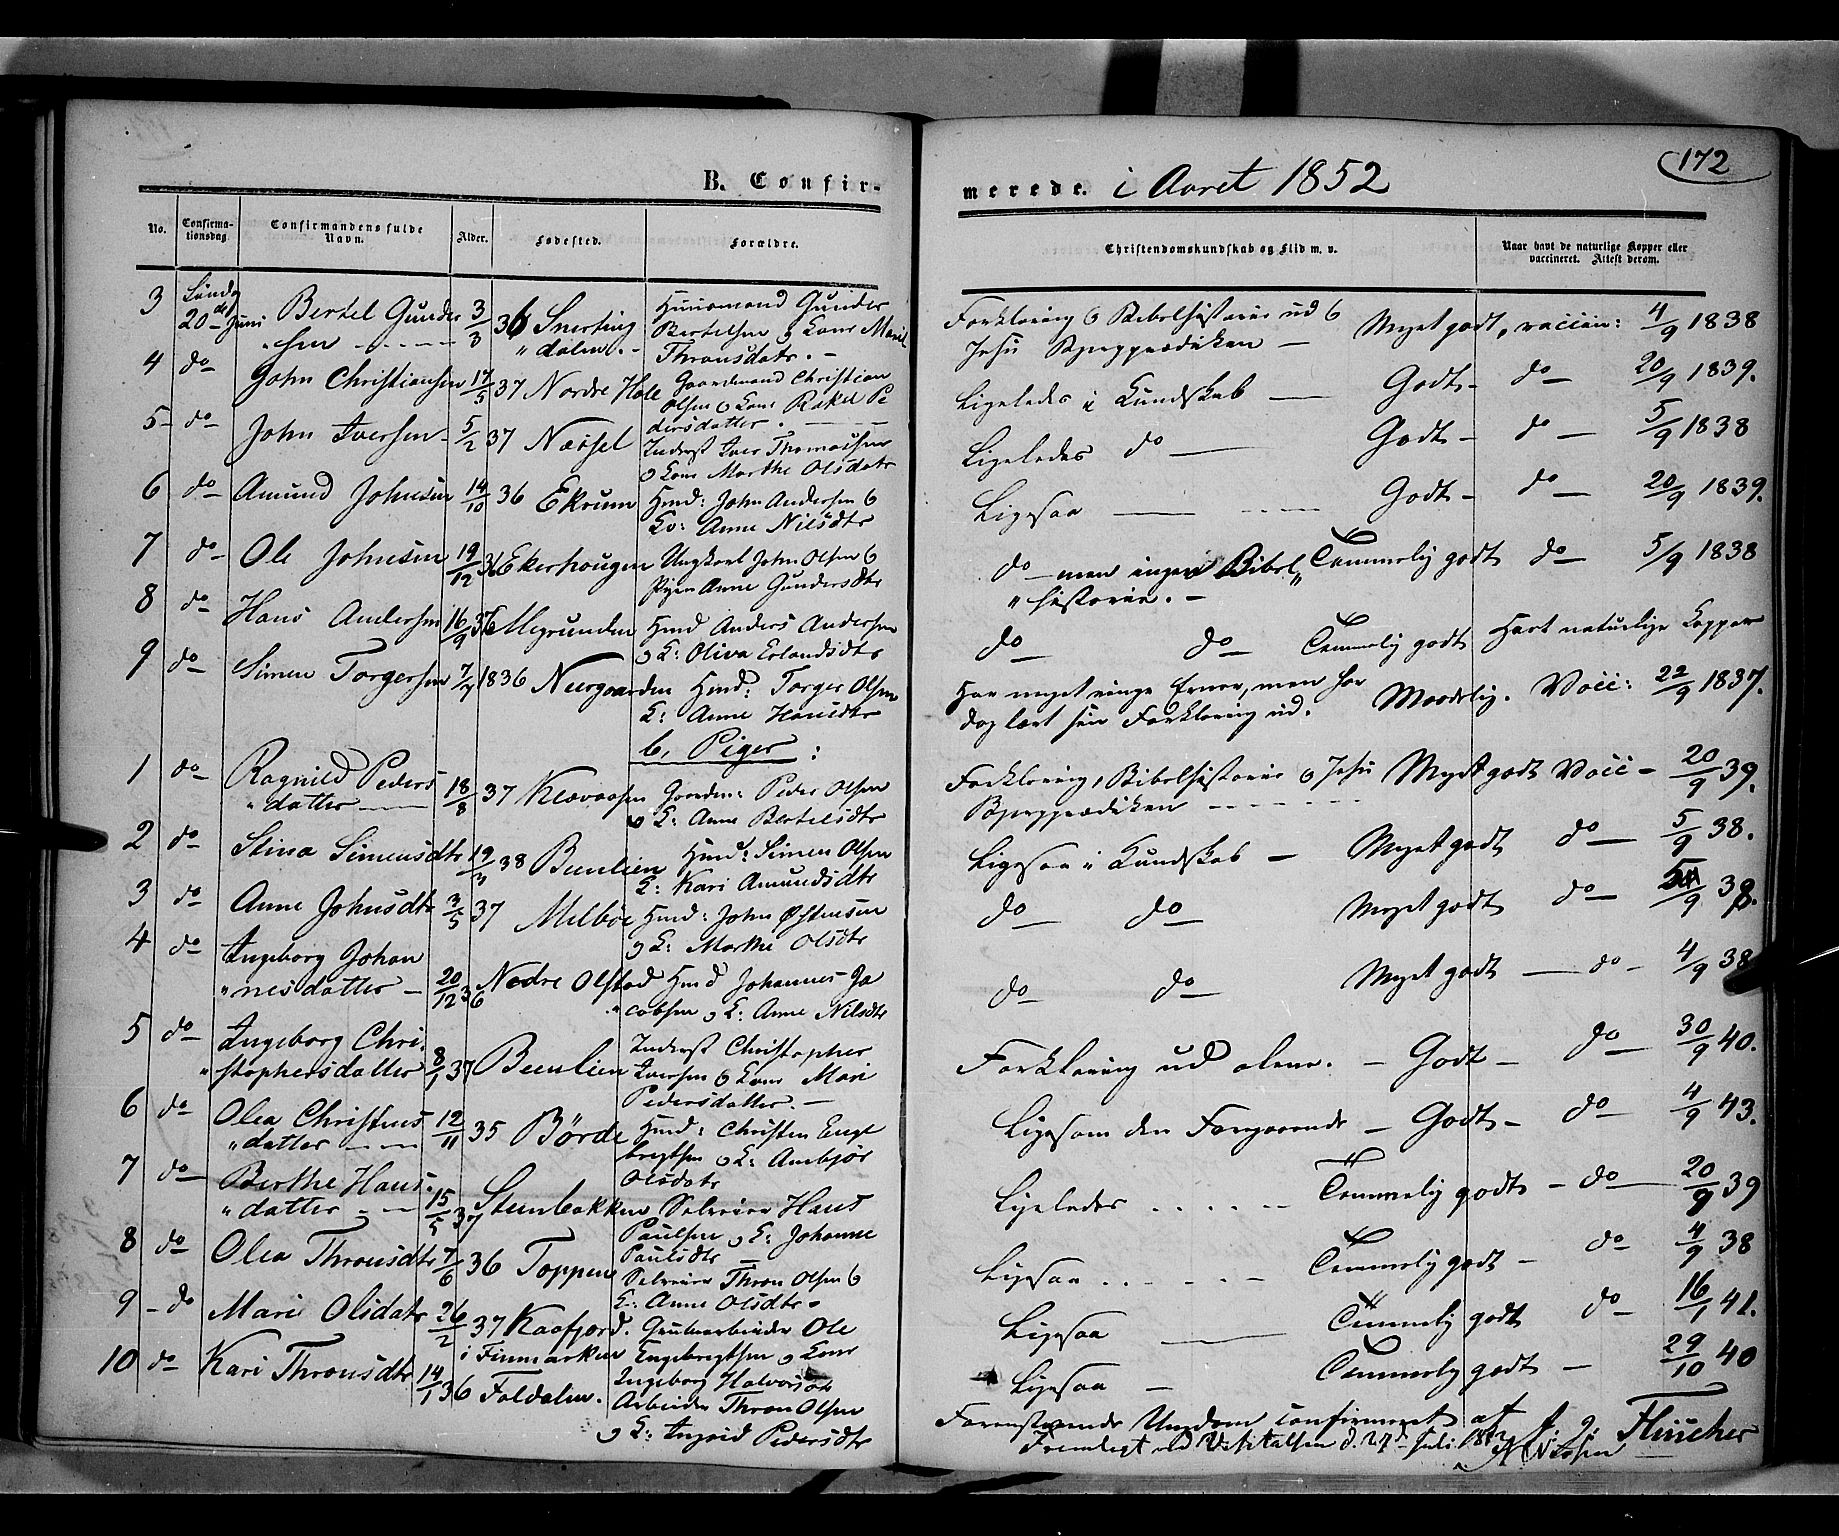 172
B. Confir-
merede. i Aaret 1852
No.
Confirma-
tionsdag
Confirmandens fulde
Navn.
Alder.
Fødested.
Forældre.
Christendomskundskab og Flid m. v.
Naar havt de naturlige Kopper eller
vaccineret. Attest derom.
3 Søndag 20de Juni Bertel Gunder 3/3 36 Snerting Huusmand Gunder Forklaring & Bibelhistorie ud & Meget godt, vaccin: 4/9 1838
"sen "dalen. Bertelsen & Kone Marit Jesu Bjergprædiken
Thronsdatr.
4 do John Christiansen 17/5 37 Nordre Hole Gaardmand Christian Ligeledes i Kundskab Godt do 20/9 1839.
Olsen & Kone Rakel Pe
dersdatter.
5 do John Iversen 5/2 37 Næssel Inderst Iver Thomassen Ligeledes do Godt do 5/9 1838
& Kone Marthe Olsdatr
6 do Amund Johnsen 14/10 36 Ekrum Hmd: John Andersen & Ligesaa Godt do 20/9 1839.
Ko: Anne Nilsdtr
7 do Ole Johnsen 19/12 36 Ekerhougen Ungkarl John Olsen & do men ingen Bibel" Temmelig godt do 5/9 1838
Pigen Anne Gundersdtr "historie.
8 do Hans Andersen 16/9 36 Mygrunden Hmd Anders Andersen do do Temmelig godt Havt naturlige Kopper
& K: Oliva Erlandsdtr
9 do Simen Torgersen 7/7 1836 Neergaarden Hmd: Torger Olsen Har meget ringe Evner, men har Maadelig. Vacc: 22/9 1837.
K: Anne Hansdtr dog lært sin Forklaring ud.
b, Piger:
1 do Ragnild Peders 18/8 37 Klævaasen Gaardm: Peder Olsen Forklaring, Bibelhistorie & Jesu Meget godt Vacc 20/9 39.
"datter & K: Anne Bertelsdtr Bjergprædiken
2 do Stina Simensdtr 19/3 38 Beenlien Hmd: Simen Olsen Ligesaa i Kundskab Meget godt do 5/9 38.
K: Kari Amundsdtr
3 do Anne Johnsdtr 3/5 37 Melbøe Hmd: John Østensen do do Meget godt do 5/9 38.
& K: Marthe Olsdtr
4 do Ingeborg Johan 20/12 36 Nedre Olstad Hmd Johannes Ja do do Meget godt do 4/9 38
"nesdatter "cobsen & K: Anne Nilsdtr
5 do Ingeborg Chri 8/1 37 Beenlien Inderst Christopher Forklaring ud alene. Godt do 30/9 40.
"stophersdatter Iversen & Kone Mari
Pedersdatter.
6 do Olea Christens 12/11 35 Børde Hmd: Christen Enge Ligesom den Foregaaende Godt do 4/9 43.
"datter bregtsen & K: Ambjør
Olsdatr
7 do Berthe Hans 15/5 37 Steenbakken Selveier Hans Ligeledes Temmelig godt do 20/9 39
"datter Paulsen & K: Johanne
Paulsdtr
8 do Olea Thronsdtr 7/6 36 Toppen Selveier Thron Olsen & Ligesaa Temmelig godt do 4/9 38
K: Anne Olsdtr.
9 do Mari Olsdatr 26/2 37 Kaafjord. Grubearbeider Ole Ligesaa Temmelig godt do 16/1 41.
i Finmarken Engebregtsen & Kone
Ingeborg Halvorsdtr
10 do Kari Thronsdtr 14/1 36 Foldalen. Arbeider Thron Olsen Ligesaa Temmelig godt 29/10 40
& K: Ingrid Pedersdtr
Foranstaaende Ungdom confirmeret af
Fremlagt ved Visitatsen d. 27d Juli 1852